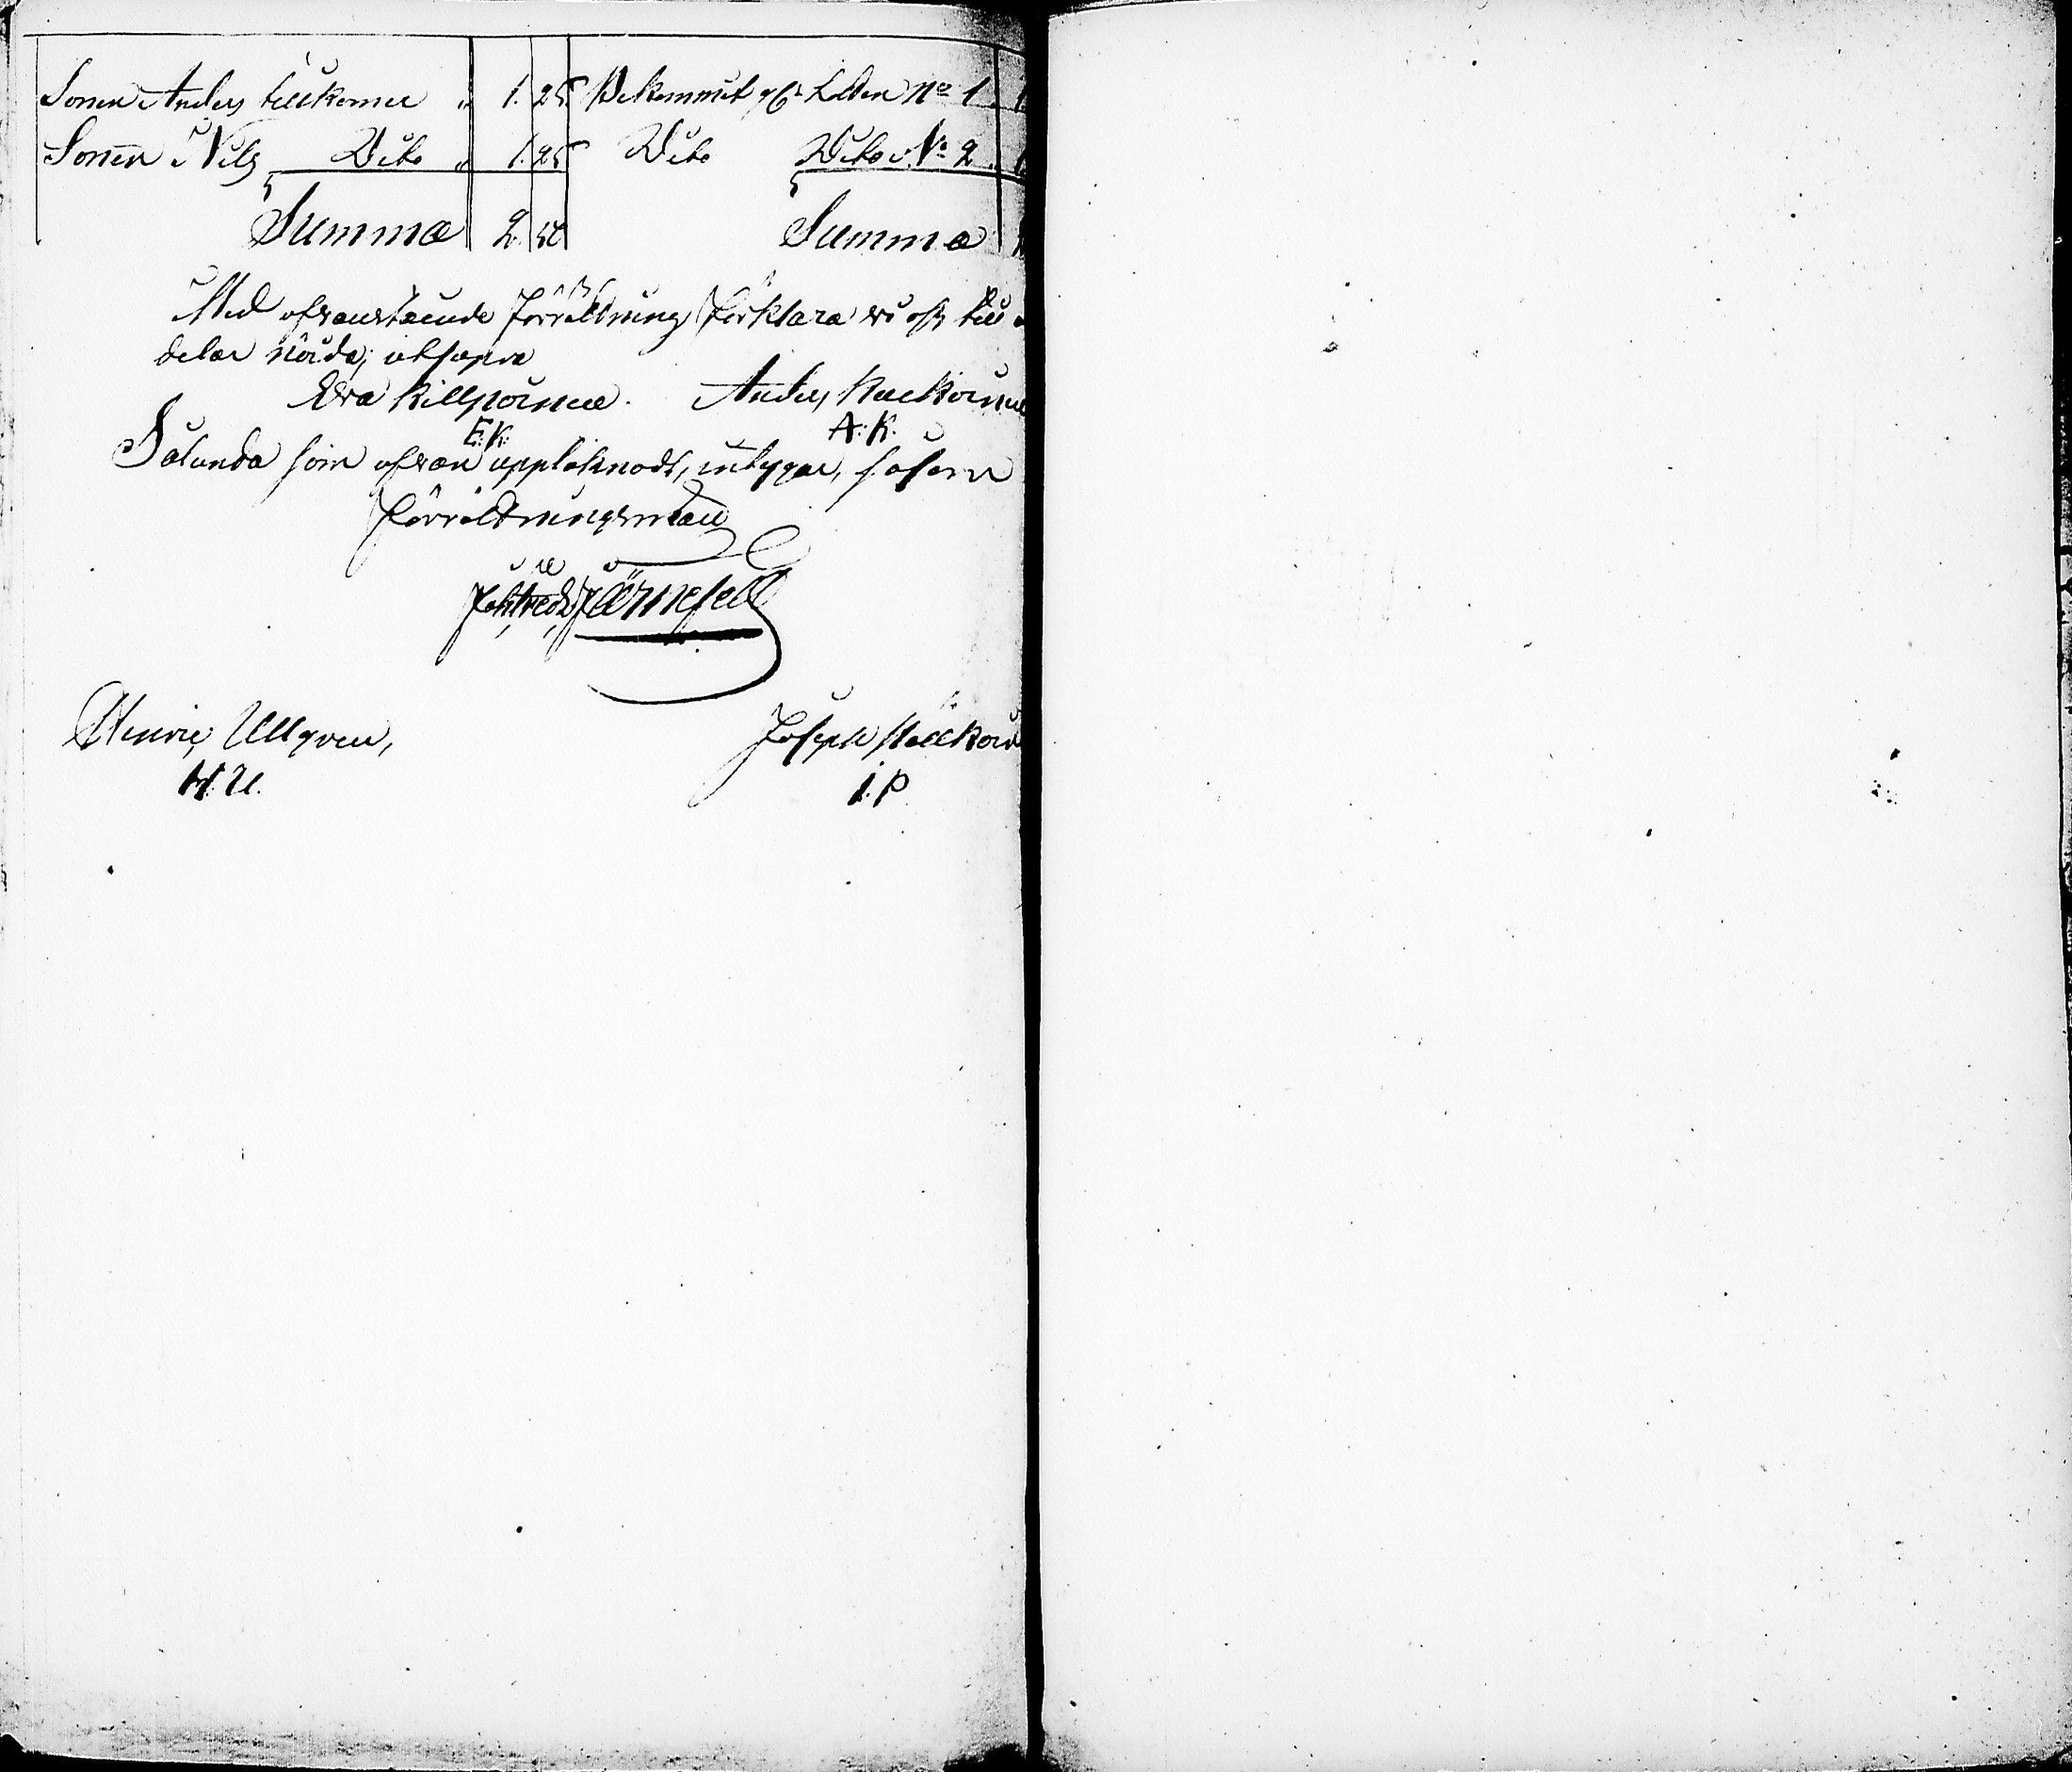 Sonen Anders tillkomer " 1. 25. Bekommit gm Lotten No 1. 1
Sonen Nils Dito " 1. 25 Dito Dito No 2 "
Summa 2. 50 Summa
Med ofvanstående förrättning förklara vi oss till
delar nöjda;
Eva Killpoinen. Anders
E: K: A: K:
Sålunda som ofvan upptecknadt, intygar, såsom
förrättningsman
Järnefelt
Henric Ullgren, Joseph
H. U. I. P